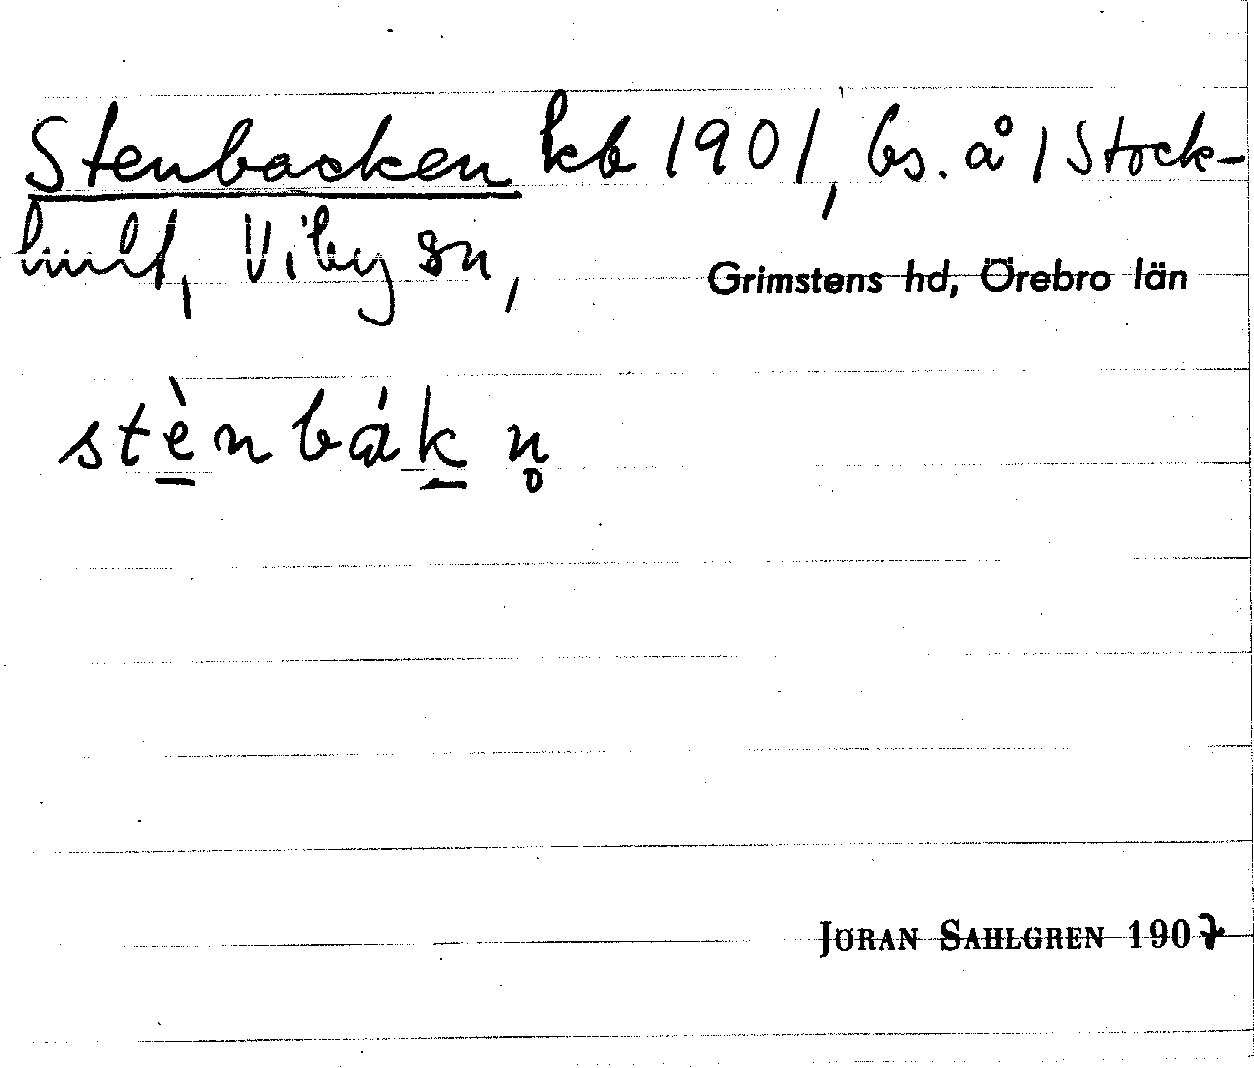 Stenbacken kb 1901, bs. å 1 Stock-
hult, Viby sn,
Grimstens hd, Örebro län
stè̠nbák̠ n̥
JÖRAN SAHLGREN 1907